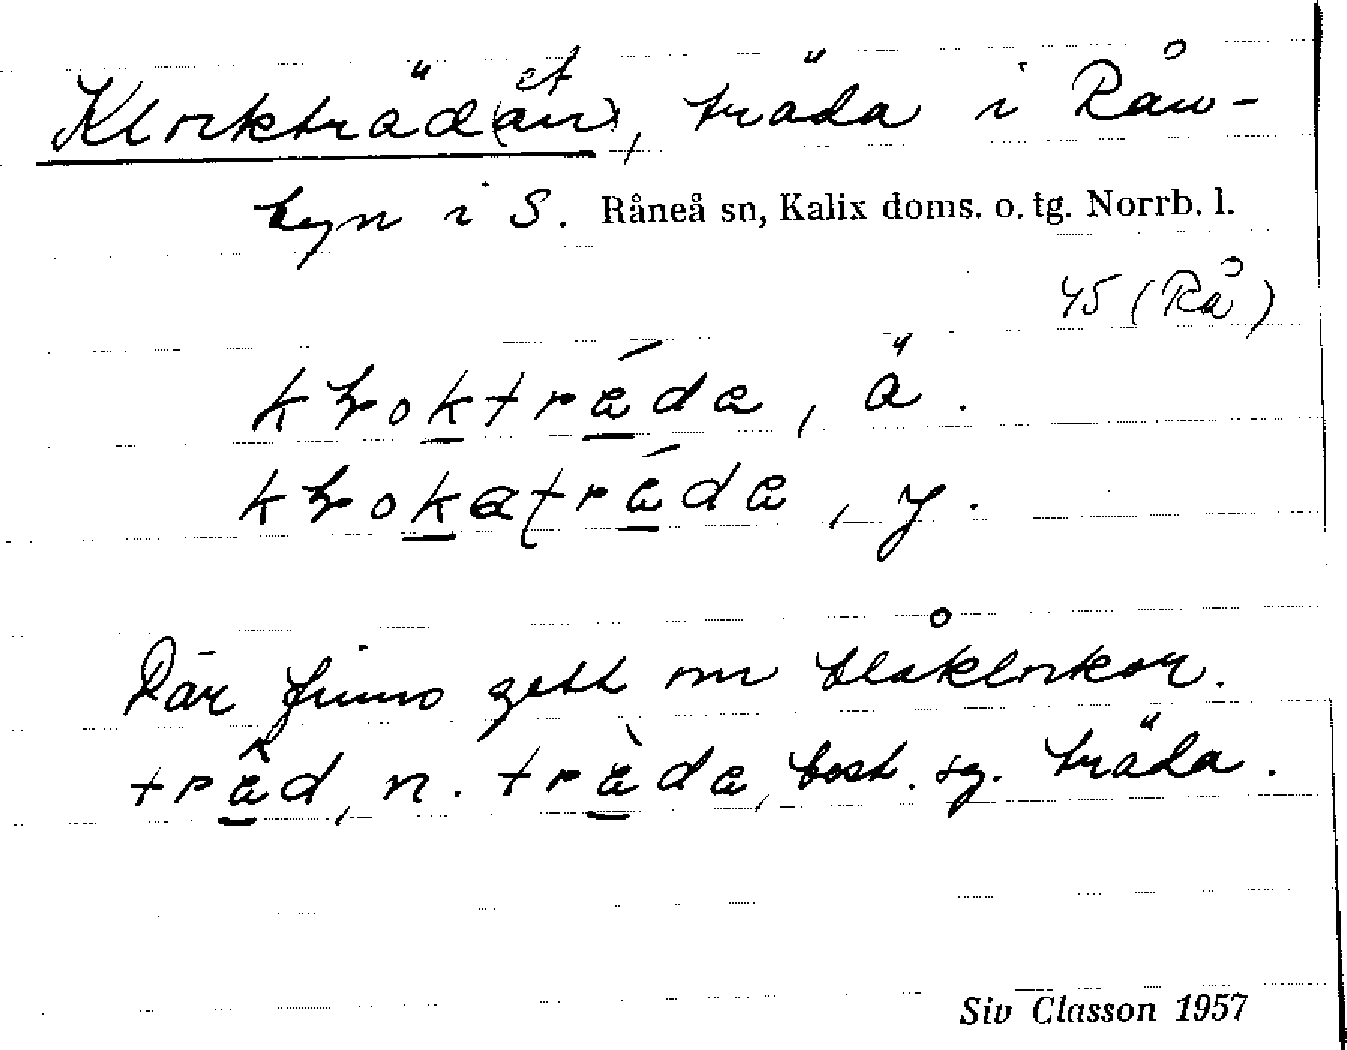 Klockträd(än)et, träda i Rån-
byn i S. Råneå sn, Kalix doms. o. tg. Norrb. l.
45 (Rå)
kɽoktráda, ä.
kɽokatráda, y.
Där finns gott om blåklockor.
trâd, n. tràda, best. sg. träda.
Siv Classon 1957